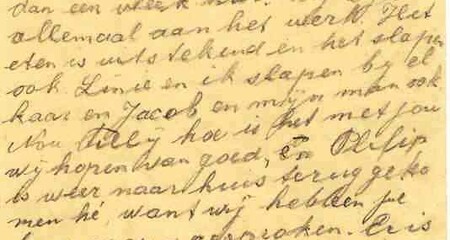 dan een week
allemaal aan het werk. Het
eten is uitstekend en het slapen
ook. Linie en ik slapen bij el
kaar en Jacob en mijn man ook
Nou Tilly hoe is het met jou
wij hopen van goed, en Philip
is weer naar huis terug geko
men hé want wij hebben je
gesproken. Er is